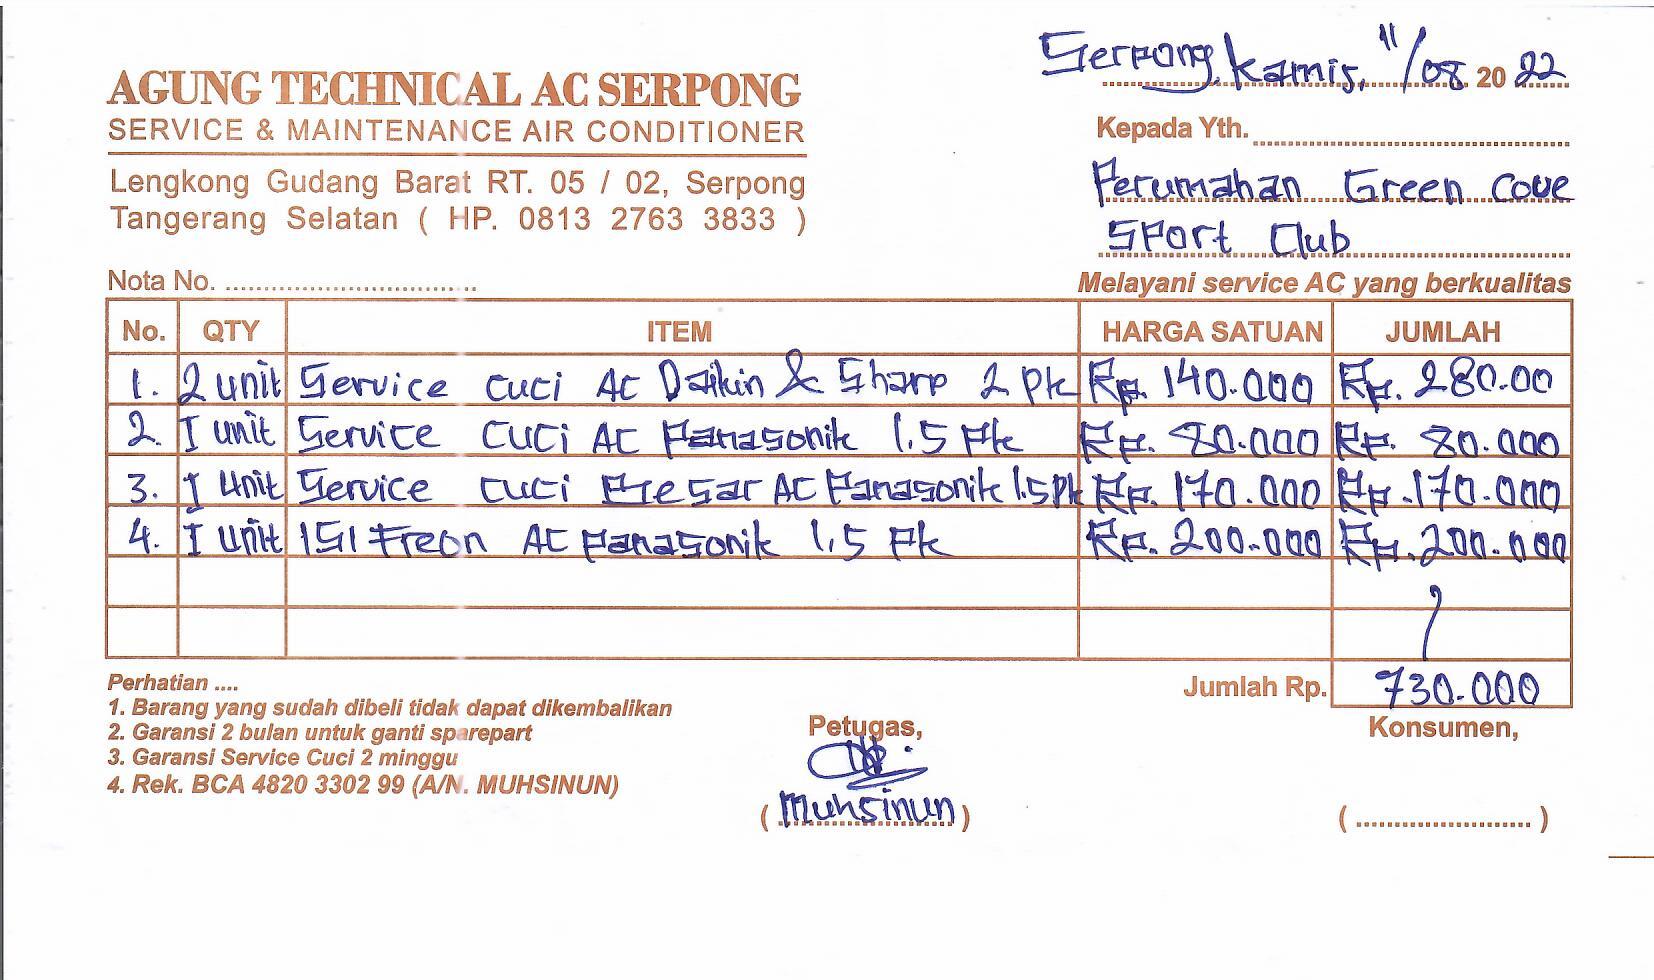 Serpong, Kamis, 11/08 2022
AGUNG TECHNICAL AC SERPONG
SERVICE & MAINTENANCE AIR CONDITIONER
Kepada Yth.
Lengkong Gudang Barat RT. 05 / 02, Serpong
Perumahan Green Cove
Tangerang Selatan ( HP. 0813 2763 3833 )
Sport Club
Nota No. ................................
Melayani service AC yang berkualitas
No. QTY ITEM HARGA SATUAN JUMLAH
1. 2 unit Service cuci AC Daikin & Sharp 2 pk Rp. 140.000 Rp. 280.00
2. I unit Service cuci AC Panasonik 1.5 Pk Rp. 80.000 Rp. 80.000
3. I unit Service cuci Besar AC Panasonik 1.5 pk Rp. 170.000 Rp. 170.000
4. I unit ISI Freon AC Panasonik 1,5 Pk Rp. 200.000 Rp. 200.000
Jumlah Rp. 730.000
Perhatian ....
1. Barang yang sudah dibeli tidak dapat dikembalikan
2. Garansi 2 bulan untuk ganti sparepart
3. Garansi Service Cuci 2 minggu
4. Rek. BCA 4820 3302 99 (A/N. MUHSINUN)
Petugas,
(Muhsinun)
Konsumen,
(........................)